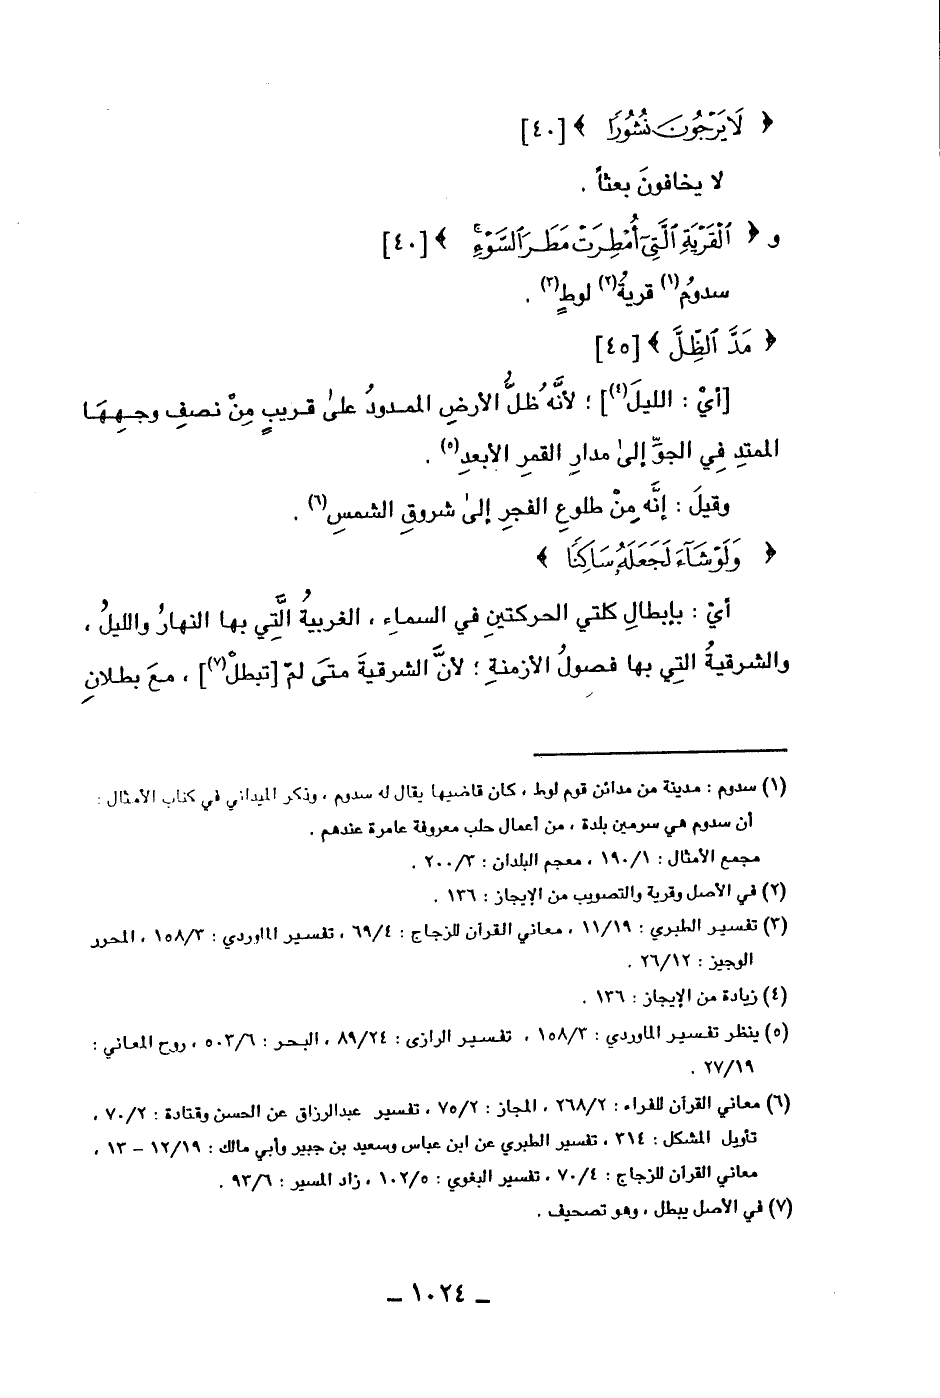 ﴿ لَا يَرْجُونَ نُشُورًا ﴾ [٤٠]
لا يخافونَ بعثاً .
و ﴿ ٱلْقَرْيَةِ ٱلَّتِىٓ أُمْطِرَتْ مَطَرَ ٱلسَّوْءِۚ ﴾ [٤٠]
سدومُ(١) قريةُ(٢) لوطٍ(٣) .
﴿ مَدَّ ٱلظِّلَّ ﴾ [٤٥]
[أيْ : الليلَ(٤)] ؛ لأنَّهُ ظلُّ الأرضِ الممدودُ علىٰ قريبٍ مِنْ نصفِ وجهِهَا
الممتدِ فِي الجوِّ إلىٰ مدارِ القمرِ الأبعدِ(٥) .
وقيلَ : إنَّه مِنْ طلوعِ الفجرِ إلىٰ شروقِ الشمسِ(٦) .
﴿ وَلَوْ شَآءَ لَجَعَلَهُۥ سَاكِنًا ﴾
أيْ : بإبطالِ كلتي الحركتينِ في السماءِ ، الغربيةُ الَّتِي بها النهارُ والليلُ ،
والشرقيةُ التِي بها فصولُ الأزمنةِ ؛ لأنَّ الشرقيةَ متىَ لمْ [تبطلْ(٧)] ، معَ بطلانِ
(١) سدوم : مدينة من مدائن قوم لوط ، كان قاضيها يقال له سدوم ، وذكر الميداني في كتاب الأمثال :
أن سدوم هي سرمين بلدة ، من أعمال حلب معروفة عامرة عندهم .
مجمع الأمثال : ١٩٠/١ ، معجم البلدان : ٢٠٠/٣ .
(٢) في الأصل وقرية والتصويب من الإيجاز : ١٣٦ .
(٣) تفسير الطبري : ١١/١٩ ، معاني القرآن للزجاج : ٦٩/٤ ، تفسير الماوردي : ١٥٨/٣ ، المحرر
الوجيز : ٢٦/١٢ .
(٤) زيادة من الإيجاز : ١٣٦ .
(٥) ينظر تفسير الماوردي : ١٥٨/٣ ، تفسير الرازى : ٨٩/٢٤ ، البحر : ٥٠٣/٦ ، روح المعاني :
٢٧/١٩ .
(٦) معاني القرآن للفراء : ٢٦٨/٢ ، المجاز : ٧٥/٢ ، تفسير عبدالرزاق عن الحسن وقتادة : ٧٠/٢ ،
تأويل المشكل : ٣١٤ ، تفسير الطبري عن ابن عباس وسعيد بن جبير وأبي مالك : ١٢/١٩ – ١٣ ،
معاني القرآن للزجاج : ٧٠/٤ ، تفسير البغوي : ١٠٢/٥ ، زاد المسير : ٩٣/٦ .
(٧) في الأصل يبطل ، وهو تصحيف .
ـ ١٠٢٤ ـ